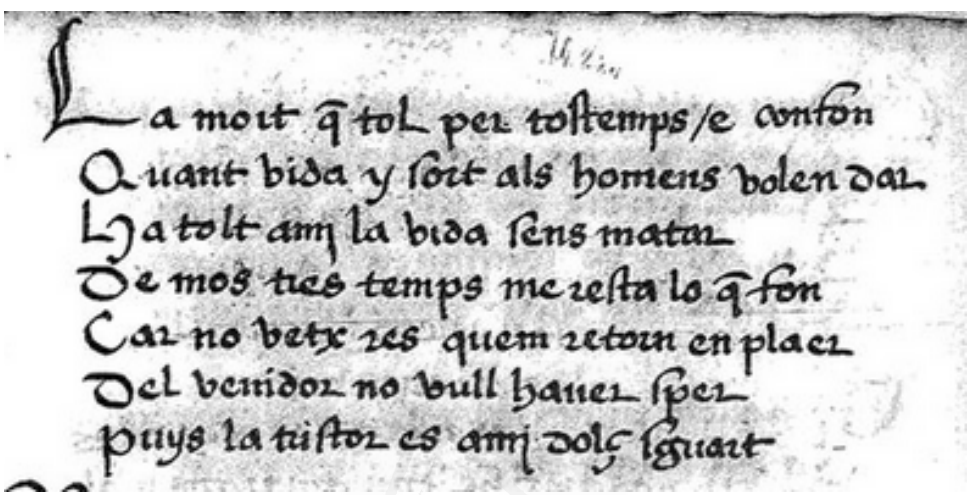 La mort q̄ tol per tostemps / e confon
Quant vida y sort als homens volen dar
Ha tolt ami la vida sens matar
De mos tres temps me resta lo q̄ fon
Car no vetx res quem retorn en plaer
Del venidor no vull hauer sper
Puys la tristor es ami dolç sguart